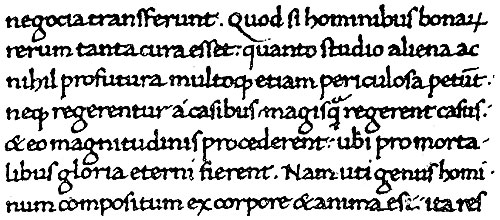 negocia transferunt. Quod si hominibus bonaꝝ
rerum tanta cura esset: quanto studio aliena ac
nihil profutura multoqꝫ etiam periculosa petūt·
neqꝫ regerentur á casibus magisꝗᷓ regerent casus·
& eo magnitudinis procederent: ubi pro morta-
libus gloria eterni fierent. Nam uti genus homi-
num compositum ex corpore & anima est: ita res